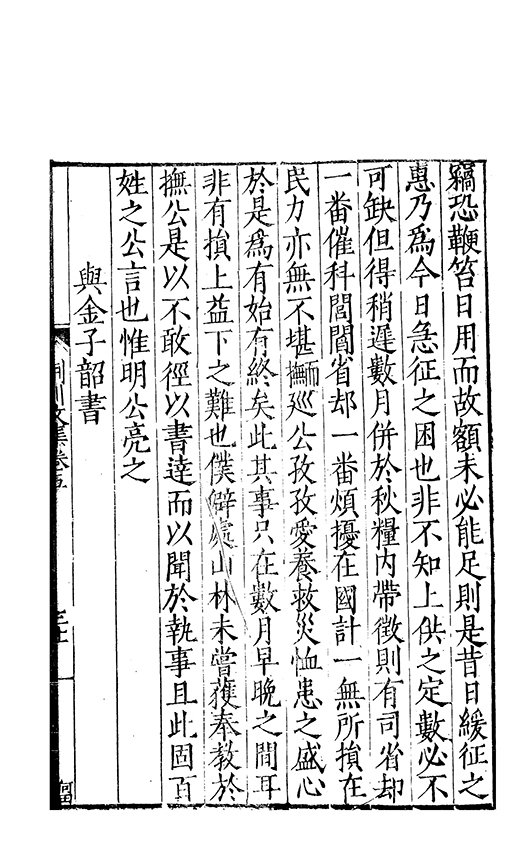 竊恐鞭笞日用而故額未必能足則是昔日緩征之
惠乃為今日急征之困也非不知上供之定數必不
可缺但得稍遲數月併於秋糧內帶徵則有司省却
一番催科閭閻省却一番煩擾在國計一無所損在
民力亦無不堪而撫廵公孜孜愛養救災恤患之盛心
於是為有始有終矣此其事只在數月早晚之間耳
非有損上益下之難也僕僻處山林未嘗獲奉教於
撫公是以不敢徑以書達而以聞於執事且此固百
姓之公言也惟明公亮之
與金子韶書
荆川文集卷五